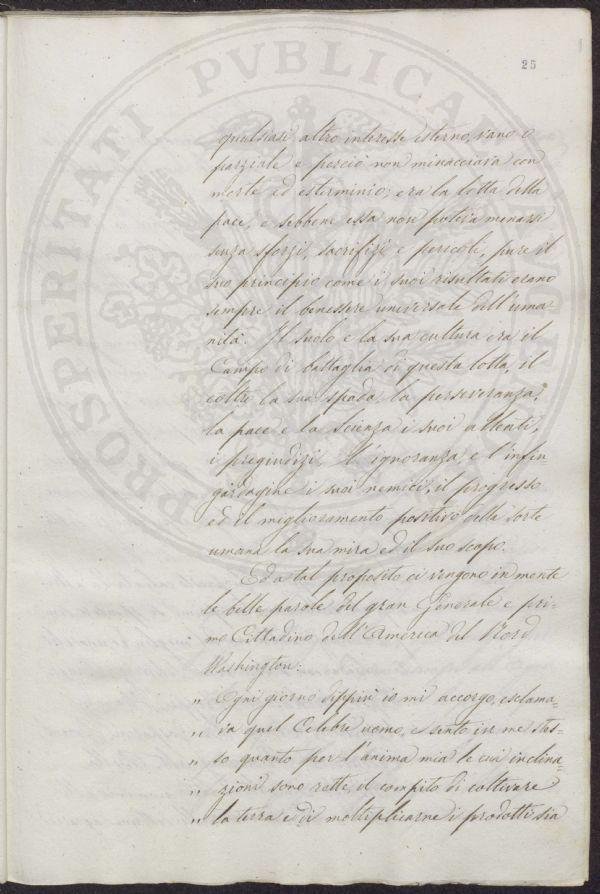 25
qualsiasi altro interesse esterno, vano o
parziale e perciò non minacciava con
morte ed esterminio; era la lotta della
pace, e sebbene essa non poteva menarsi
senza sforzi, sacrifizi e pericoli, pure il
suo principio come i suoi risultati erano
sempre il benessere universale dell'uma-
nità. Il suolo e la sua cultura era il
Campo di battaglia di questa lotta, il
coltro la sua spada, la perseveranza,
la pace e la Scienza i suoi attenti,
i pregiudizi, l'ignoranza, e l'infin
gardagine i suoi nemici, il progresso
ed il miglioramento positivo della sorte
umana la sua mira ed il suo scopo.
Ed a tal proposito ci vengono in mente
le belle parole del gran Generale e pri-
mo Cittadino dell'America del Nord
Washington:
„ Ogni giorno io mi accorgo, esclama-
„ va quel Celebre uomo, e sento in me stes-
„ so quanto per l'anima mia le cui inclina-
„ zioni sono rette, il compito di coltivare
„ la terra e di moltiplicarne i prodotti sia
PROSPERITATI PVBLICAE